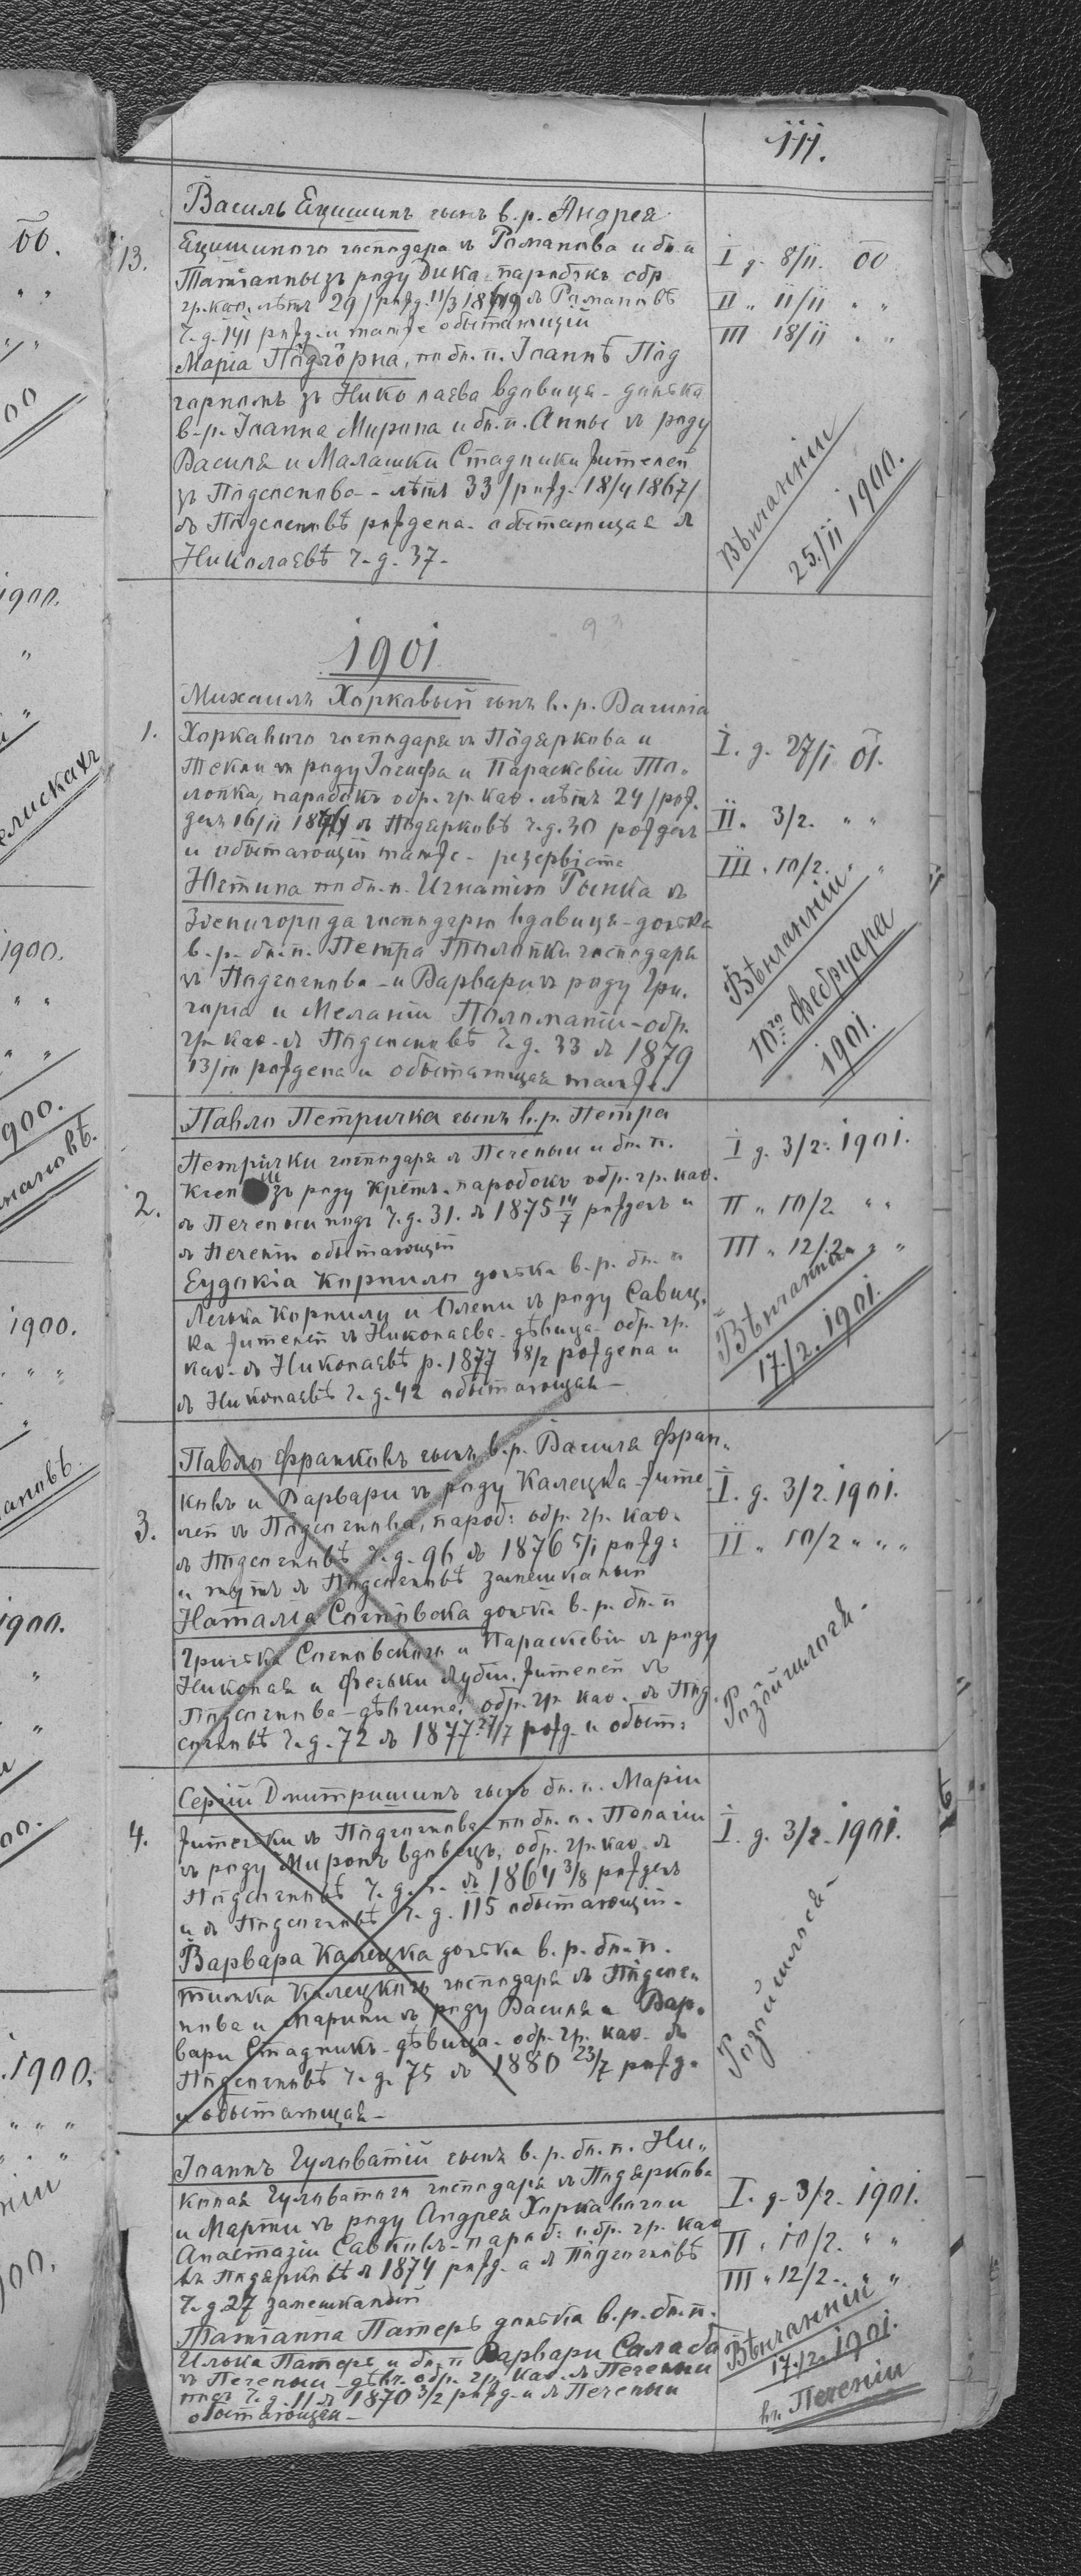 111.
Василь Ецишинъ сынъ в.р. Андрея
13. Ецишиного господаря зъ Романова и бл.п
Татіанны зъ роду Дика парибокъ обр
гр. каѳ. лѣтъ 29 /рожд. 11/3 18 въ Романовѣ
ч.д. 141 рожд. и такъже обытающій
Марія Підгôрна, по бл. п. Іоаннѣ Під
горномъ зъ Николаева вдовиця - донька
в.р. Іоанна Мирона и бл.п. Анны зъ роду
Василя и Малашки Стадники жителей
зъ Підсоснова - лѣтъ 33 /рожд. 18/4 1867/
въ Підсосновѣ рождена обытающая в
Николаевѣ ч.д. 37.
I д. 8/II. 00
II " 11/II " "
III 18/II " "
Вѣнчанніи
25./II 1900.
1901
93
Михаилъ Хоркавый сынъ в.р. Василія
1. Хоркавого господаря зъ Підяркова и
Текли зъ роду Іосифа и Параскевіи То-
лопка, парибокъ обр. гр. каѳ. лѣтъ 24 /рож.
денъ 16/II 18 въ Підярковѣ ч.д. 30 рожденъ
и обытающій такъже - резервіста
Юстина по бл.п. Игнатію Рынка зъ
Звенигорода господарю вдовиця - донька
в.р. бл.п. Петра Толопки господаря
зъ Підсоснова - и Варвари зъ роду Гри-
горія и Меланіи - обр.
гр каѳ. въ Підсосновѣ ч.д. 33 въ 1879
13/III рождена и обытающая такъже.
I. д. 27/I 01.
II. 3/2. " "
III. 10/2. " "
Вѣнчанніи
10го Фебруара
1901.
Павло Петричка сынъ в.р. Петра
Петрички господаря въ Печеныи и бл.п.
2. Ксен зъ роду Кретъ. паробокъ обр. гр. каѳ.
въ Печеныи подъ ч.д. 31. въ 1875 14/7 рожденъ и
въ Печеніи обытающій
Еудокіа Корнило донька в.р. бл. п
Леська Корнилу и Олени зъ роду Савиц-
ка жителей зъ Николаева - дѣвица - обр. гр.
каѳ. въ Николаевѣ р. 1877 18/2 рождена и
въ Николаевѣ ч.д. 42 обытающая -
I д. 3/2. 1901.
II " 10/2. " "
III " 12/2. " "
Вѣнчанни
17./2. 1901.
Павло Франковъ сынъ в.р. Василя Фран-
ковъ и Варвари зъ роду Калецка - жите-
3. лей зъ Підсоснова, пароб: обр. гр. каѳ.
въ Підсосновѣ ч.д. 96 въ 1876 5/1 рожд:
и тутъ въ Підсосновѣ замешканый
Наталіа Сосновска донька в.р. бл. п
Гринька Сосновского и Параскевіи зъ роду
Николая и Феськи жителей зъ
Підсоснова - дѣвчина, обр. гр каѳ. въ Під-
сосновѣ ч.д. 72 въ 1877 27/7 рожд. и обыт:
I. д. 3/2. 1901.
II " 10/2 " " "
Розойшлося -
Сергій Дмитришинъ сынъ бл. п. Маріи
4. жительки зъ Підсоснова - по бл. п. Полагіи
зъ роду Миронъ вдовецъ, обр. гр. каѳ. въ
Підсосновѣ ч.д. въ 1864 3/8 рожденъ
и въ Підсосновѣ ч.д. 115 обытающій -
Варвара Калецка донька в.р. бл. п.
Тимка Калецкого господаря въ Підсос-
нова и Марини зъ роду Василя и Вар-
вари Стадникъ - дѣвица - обр. гр. каѳ. въ
Підсосновѣ ч.д. 75 въ 1880 23/7 рожд.
и обытающая -
I. д. 3/2. 1901.
Розойшлося -
Іоаннъ Гулюватій сынъ в.р. бл. п. Ни-
колая Гулюватого господаря въ Підяркова
и Марти зъ роду Андрея Хоркавого и
Анастазіи Савковъ - пароб: обр. гр. каѳ
въ Підярковѣ въ 1874 рожд. а въ Підсосновѣ
ч.д. 27 замешканый
Татіанна Патеръ донька в.р. бл. п.
Илька Патера и бл. п Варвари Салаба
зъ Печеныи - дѣвч. обр. гр. каѳ. въ Печеныи
подъ ч.д. 11 въ 1870 3/2 рожд. и въ Печеныи
обытающая -
I. д. 3/2. 1901.
II. 10/2. " "
III " 12/2. " "
Вѣнчанніи
17./2. 1901.
въ Печеніи